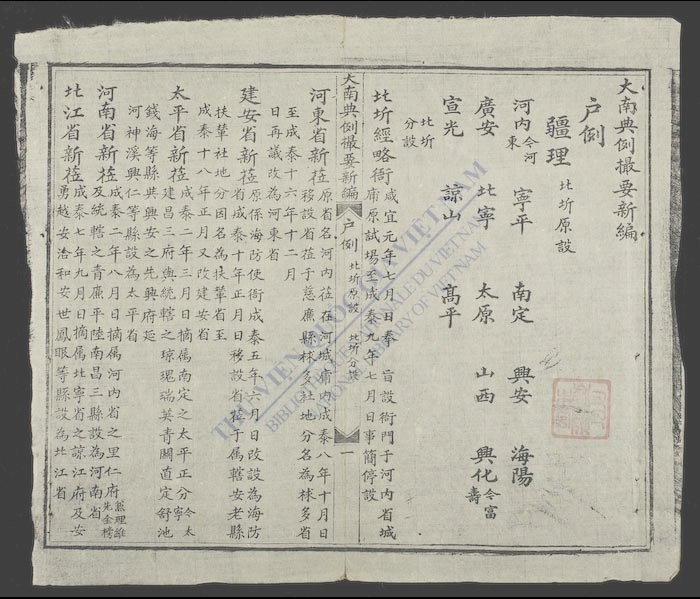 大南典例撮要新編
户例
疆理 北圻原設
河内 今河東 寧平 南定 興安 海陽
廣安 北寧 太原 山西 興化 今富壽
宣光 諒山 高平
北圻分設
北圻經略衙 咸宜元年七月日奉 旨設衙門于河内省城
庸原試場至成泰九年七月日事簡停設
大南典例撮要新編 户例 北圻原設 北圻分設 一
河東省新莅 原省名河内莅在河城庸内成泰八年十月日
移設省莅于慈廉縣梂多社地分名為梂多省
至成泰十六年十二月
日再議改為河東省
建安省新莅 原係海防使衙成泰五年六月日改設為海防
省成泰十年正月日移設省莅于属轄安老縣
扶輦社地分因名為扶輦省至
成泰十八年正月又改建安省
太平省新莅 成泰二年三月日摘属南定之太平正分 今太寧
建昌三府與統轄之瓊瑰瑞英青關直定舒池
錢海等縣與興安之先興府延
河神溪興仁等縣設為太平省
河南省新莅 成泰二年八月日摘属河内省之里仁府
及統轄之青廉平陸南昌三縣設為河南省
北江省新莅 成泰七年九月日摘属北寧省之諒江府及安
勇越安洽和安世鳳眼等縣設為北江省
THƯ VIỆN QUỐC GIA VIỆT NAM
BIBLIOTHÈQUE NATIONALE DU VIETNAM
NATIONAL LIBRARY OF VIETNAM